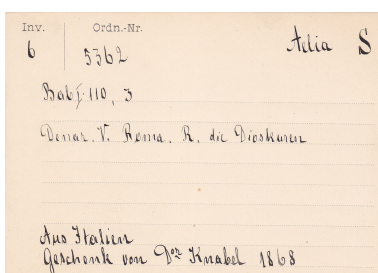 Inv. Ordn.-Nr.
6 5362 Aelia S
Bab I 110, 3
Denar. V. Roma. R. die Dioskuren
Aus Italien
Geschenk von Don Knabel 1868